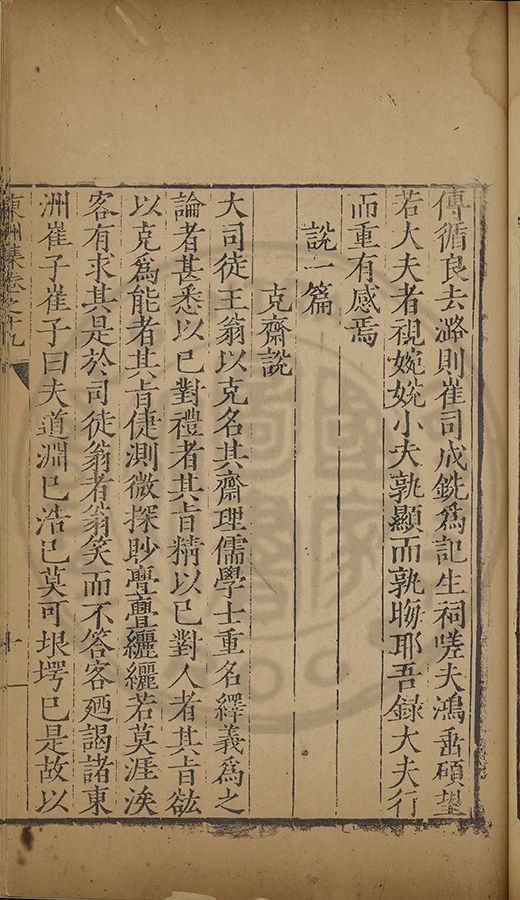 傳循良去潞則崔司成銑爲記生祠嗟夫鴻垂碩望
若大夫者視婉娩小夫孰顯而孰晦耶吾録大夫行
而重有感焉
說一篇
克齋說
大司徒王翁以克名其齋理儒學士重名繹義爲之
論者甚悉以已對禮者其旨精以已對人者其旨
以克爲能者其旨倢測微探眇亹亹纚纚若莫涯涘
客有求其是於司徒翁者翁笑而不答客廼謁諸東
洲崔子崔子曰夫道淵已浩已莫可垠堮已是故以
東洲集卷之十九
十一